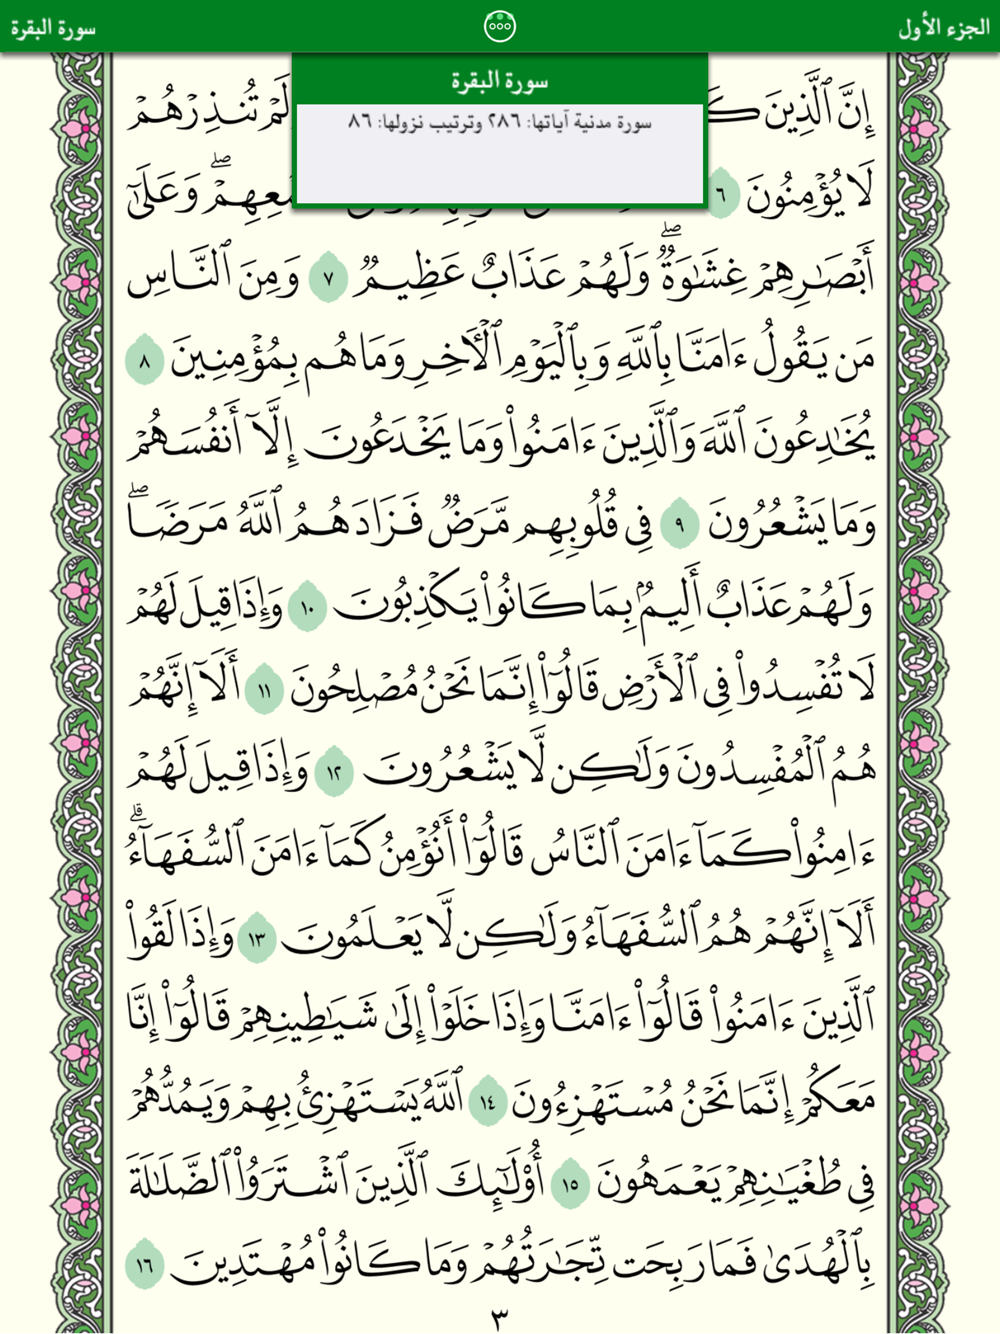 الجزء الأول
سورة البقرة
سورة البقرة
سورة مدنية آياتها: ٢٨٦ وترتيب نزولها: ٨٦
إِنَّ ٱلَّذِينَ لَمْ تُنذِرْهُمْ
لَا يُؤْمِنُونَ ٦ وَعَلَىٰٓ
أَبْصَٰرِهِمْ غِشَٰوَةٌۖ وَلَهُمْ عَذَابٌ عَظِيمٌ ٧ وَمِنَ ٱلنَّاسِ
مَن يَقُولُ ءَامَنَّا بِٱللَّهِ وَبِٱلْيَوْمِ ٱلْأَخِرِ وَمَا هُم بِمُؤْمِنِينَ ٨
يُخَٰدِعُونَ ٱللَّهَ وَٱلَّذِينَ ءَامَنُوا۟ وَمَا يَخْدَعُونَ إِلَّآ أَنفُسَهُمْ
وَمَا يَشْعُرُونَ ٩ فِى قُلُوبِهِم مَّرَضٌ فَزَادَهُمُ ٱللَّهُ مَرَضًاۖ
وَلَهُمْ عَذَابٌ أَلِيمٌۢ بِمَا كَانُوا۟ يَكْذِبُونَ ١٠ وَإِذَا قِيلَ لَهُمْ
لَا تُفْسِدُوا۟ فِى ٱلْأَرْضِ قَالُوٓا۟ إِنَّمَا نَحْنُ مُصْلِحُونَ ١١ أَلَآ إِنَّهُمْ
هُمُ ٱلْمُفْسِدُونَ وَلَٰكِن لَّا يَشْعُرُونَ ١٢ وَإِذَا قِيلَ لَهُمْ
ءَامِنُوا۟ كَمَآ ءَامَنَ ٱلنَّاسُ قَالُوٓا۟ أَنُؤْمِنُ كَمَآ ءَامَنَ ٱلسُّفَهَآءُۗ
أَلَآ إِنَّهُمْ هُمُ ٱلسُّفَهَآءُ وَلَٰكِن لَّا يَعْلَمُونَ ١٣ وَإِذَا لَقُوا۟
ٱلَّذِينَ ءَامَنُوا۟ قَالُوٓا۟ ءَامَنَّا وَإِذَا خَلَوْا۟ إِلَىٰ شَيَٰطِينِهِمْ قَالُوٓا۟ إِنَّا
مَعَكُمْ إِنَّمَا نَحْنُ مُسْتَهْزِءُونَ ١٤ ٱللَّهُ يَسْتَهْزِئُ بِهِمْ وَيَمُدُّهُمْ
فِى طُغْيَٰنِهِمْ يَعْمَهُونَ ١٥ أُو۟لَٰٓئِكَ ٱلَّذِينَ ٱشْتَرَوُا۟ ٱلضَّلَٰلَةَ
بِٱلْهُدَىٰ فَمَا رَبِحَت تِّجَٰرَتُهُمْ وَمَا كَانُوا۟ مُهْتَدِينَ ١٦
٣